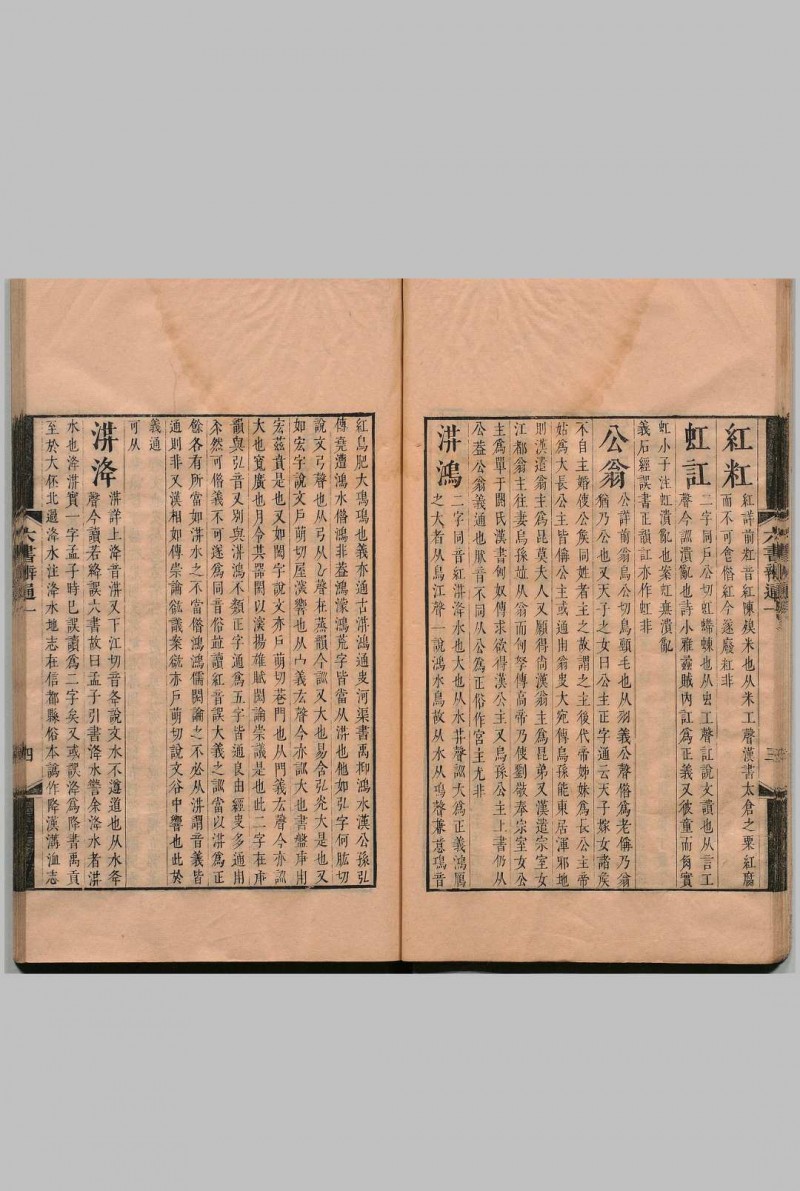 紅粠
紅詳前粠音紅陳䅣米也从米工聲漢書太倉之粟紅腐
而不可食俗紅今遂廢紅非
虹訌
二字同戶公切虹螮蝀也从虫工聲訌說文讀也从言工
聲今認潰亂也詩小雅蟊賊內訌爲正義又彼童而角實
虹小子注虹潰亂也案虹無潰亂
義石經誤書正韻訌亦作虹非
公翁
公詳前翁烏公切鳥頸毛也从羽義公聲俗爲老偁乃翁
猶乃公也又天子之女曰公主正字通云天子嫁女諸矦
不自主婚使公矦同姓者主之故謂之主後代帝姊妹爲長公主帝
姑爲大長公主皆偁公主或通用翁叓大宛傳烏孫能東居渾邪地
則漢遣翁主爲昆莫夫人又願得尙漢翁主爲昆弟又漢遣宗室女
江都翁主往妻烏孫竝从翁而匈奴傳高帝乃使劉敬奉宗室女公
主爲單于閼氏漢書匈奴傳求欲得漢公主又烏孫公主上書仍从
公葢公翁義通也肰音不同从公爲正俗作宮主尤非
洪鴻
二字同音紅洪洚水也大也从水共聲認大爲正義鴻屬
之大者从鳥江聲一說鴻水鳥故从水从鳥聲兼意瑦音
紅鳥肥大瑦瑦也義亦通古洪鴻通叓河渠書禹抑鴻水漢公孫弘
傳堯遭鴻水偕鴻非葢鴻濛鴻荒字皆當从洪也他如弘字何肱切
說文弓聲也从弓从厶聲在蒸韻今認又大也易含弘光大是也又
如宏字說文戶萌切屋㴱響也从宀義厷聲今亦認大也書盤庚用
宏茲賁是也又如閎字說文亦戶萌切巷門也从門義厷聲今亦認
大也寬廣也月令其器閎以淹揚雄賦閎論崇議是也此二字在庚
韻與弘音又別與洪鴻不類正字通爲五字皆通良由經叓多通用
尒然可俗義不可遂爲同音俗竝讀紅音誤大義之認當以洪爲正
餘各有所當如洪水之不當俗鴻鴻儒閎論之不必从洪謂音義皆
通則非又漢相如傳崇論谹議案谹亦戶萌切說文谷中響也此於
義通
可从
洪洚
洪詳上洚音洪又下江切音夅說文水不遵道也从水夅
聲今讀若絳誤六書故曰孟子引書洚水警余洚水者洪
水也洚洪實一字孟子時巳誤讀爲二字矣又或誤洚爲降書禹貢
至於大伾北過洚水注洚水地志在信都縣俗本譌作降漢溝洫志
六書辨通一
三
六書辨通一
四